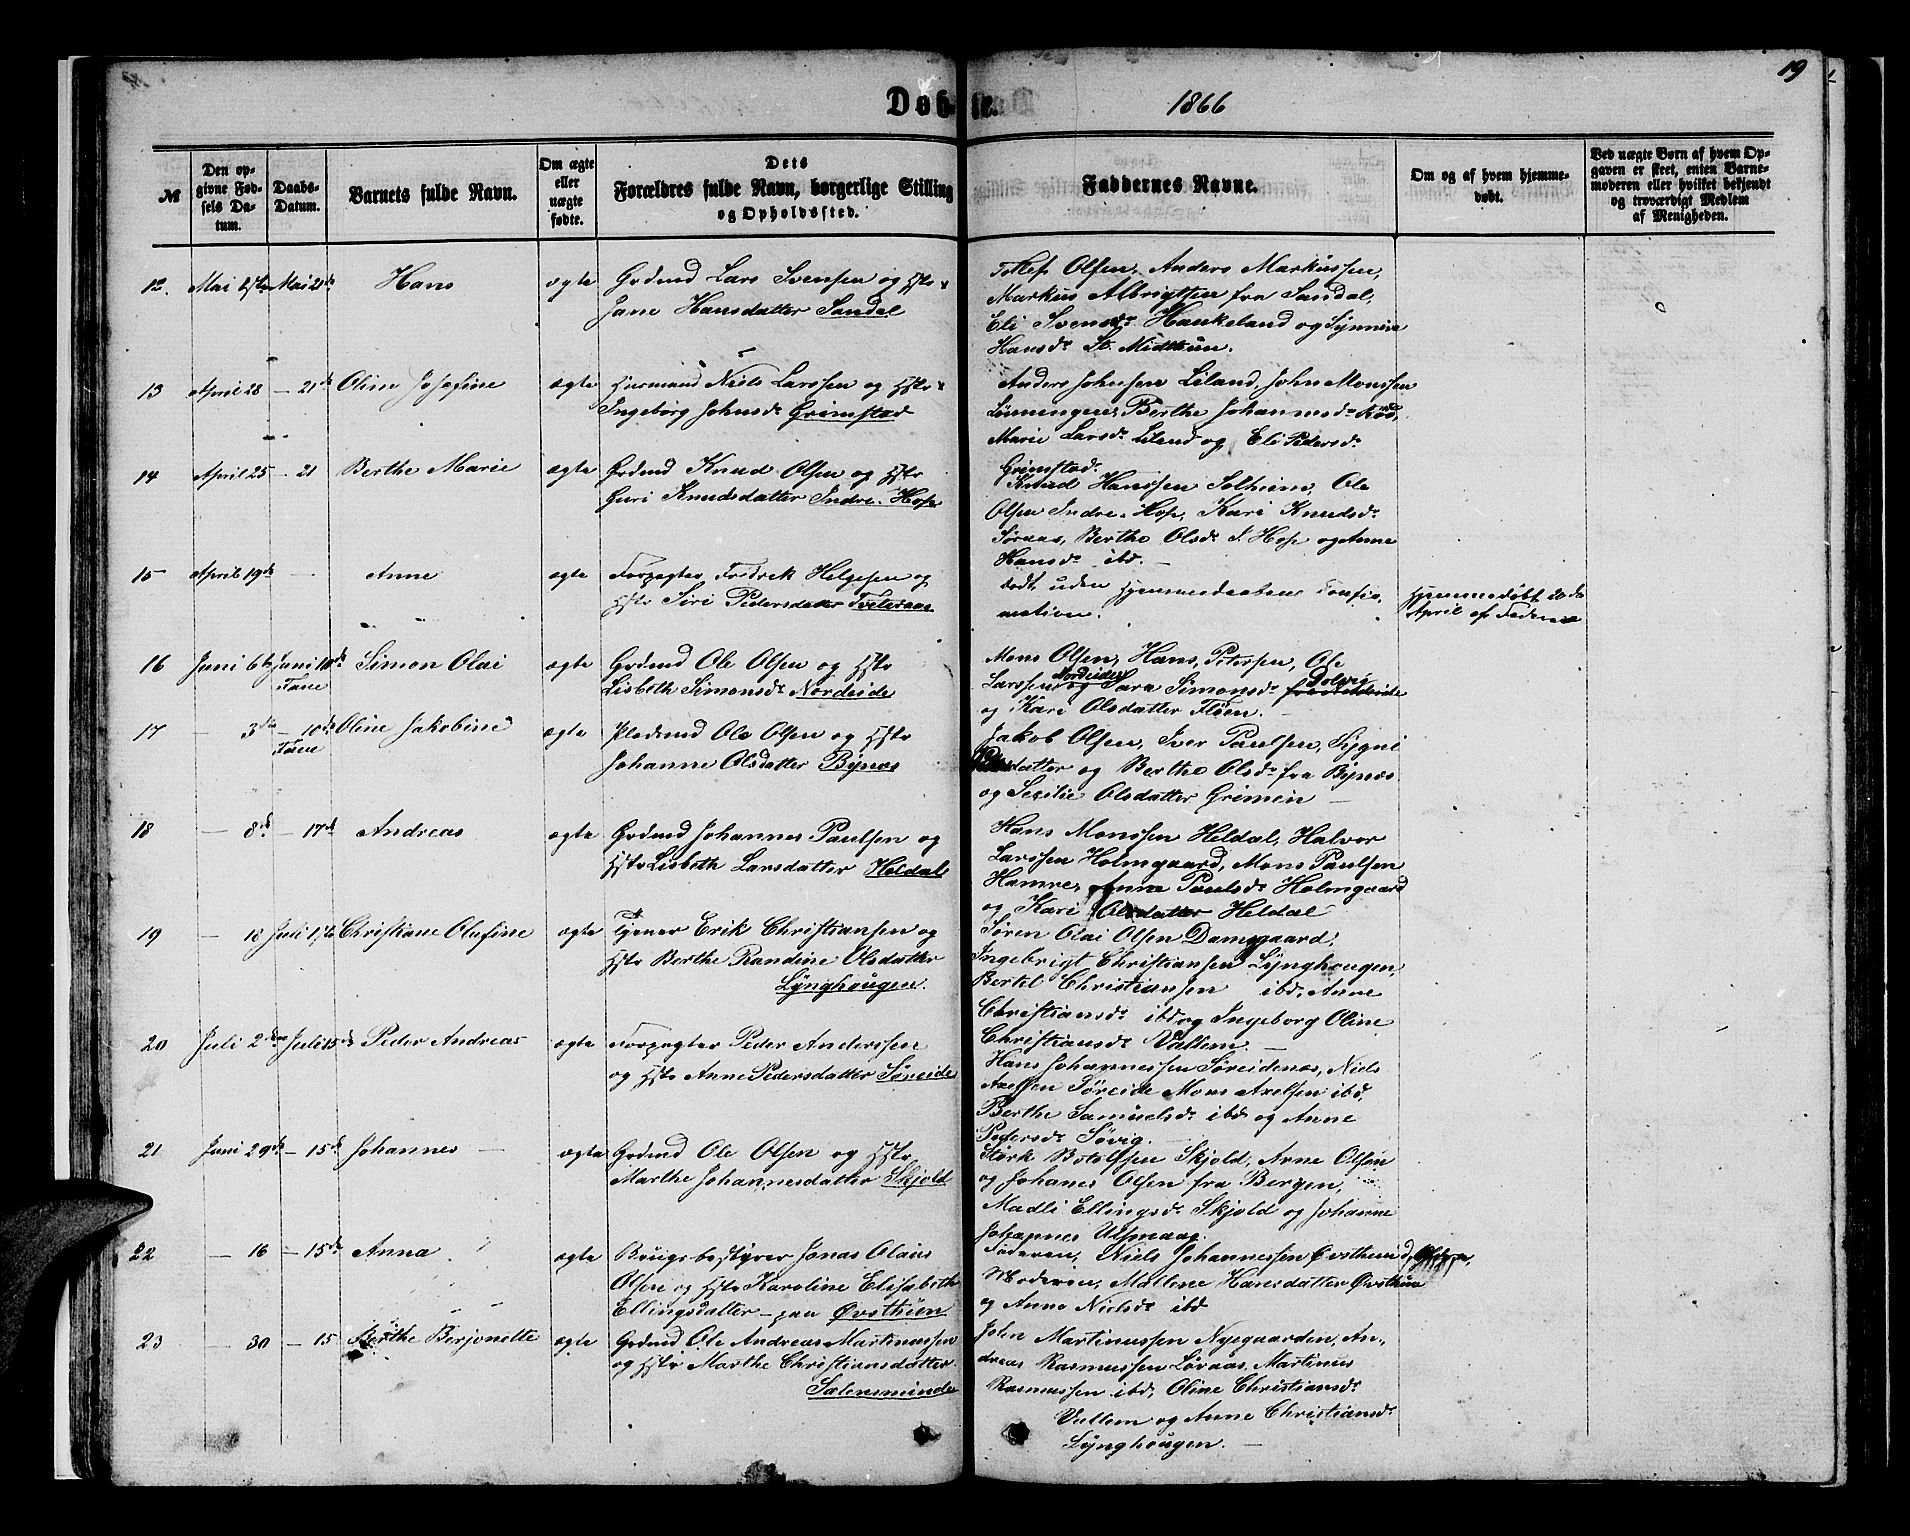 19
Døbte. 1866
№
Den opgivne Fødsels Datum.
Daabs-Datum.
Barnets fulde Navn.
Om ægte eller uægte fødte.
Dets Forældres fulde Navn, borgerlige Stilling og Opholdssted.
Faddernes Navne.
Om og af hvem hjemmedøbt.
Ved uægte Børn af hvem Opgaven er skeet, enten Barnemoderen eller hvilket bekjendt og troværdigt Medlem af Menigheden.
12. Mai Mai 21de Hans ægte Grdmd Lars Svensen og Hstr
Jane Hansdatter Sandal
Olsen, Anders Markussen,
Markus Albrigtsen fra Sandal,
Eli Svensdr Haukeland og Synneve
Hansdr St. Midttun.
13 April 28 – 21de Oline Josefine ægte Huusmand Niels Larssen og Hstr
Ingeborg Johnsdr Grimstad
Anders Johnsen Liland, John Monssen
Lønningene, Berthe Johannesdr
Marie Larsdr Liland og Eli Pedersdr
Grimstad.
14 April 25 – 21 Berthe Marie ægte Grdmd Knud Olsen og Hstr
Guri Knudsdatter Indre-Hop
Knud Hanssen Solheim, Ole
Olsen Indre-Hop, Kari Knudsdr
Søraas, Berthe Olsdr I. Hop og Anne
Hansdr ibd. –
15 April 19de – Anne ægte Forpagter Fredrek Helgesen og
Hstr Siri Pedersdatter Tveteraas
død uden Hjemmedaabens Confir-
mation.
Hjemmedøbt 20de
April af Faderen
16 Juni 6te Juni 10de Simon Olai ægte Grdmd Ole Olsen og Hstr
Fane
Lisbeth Simonsdr Nordeide
Mons Olsen, Hans Petersen, Ole
Larssen Nordeide og Sara Simonsdr Dolvig
og Kari Olsdatter Fløen. –
17 – 3die – 10de Oline Jakobine ægte Pladsmd Ole Olsen og Hstr
Fane
Johanne Olsdatter Bynes
Jakob Olsen, Iver Paulsen, Sygni
datter og Berthe Olsdr fra Bynes
og Sesilie Olsdatter Grimen –
18 – 8de – 17de Andreas ægte Grdmd Johannes Paulsen og
Hstr Lisbeth Larsdatter Heldal
Hans Monssen Heldal, Halvor
Larssen Holmgaard, Mons Paulsen
Hamre, Anna Paulsdr Holmgaard
og Kari Olsdatter Heldal
19 – 18 Juli 1ste Christiane Olufine ægte Tjener Erik Christiansen og
Hstr Berthe Randine Olsdatter
Lynghougen.
Søren Olai Olsen Damsgaard,
Ingebrigt Christiansen Lynghougen,
Bertel Christiansen ibd, Anne
Christiansdr ibd og Ingeborg Oline
Christiansdr Vallem. –
20 Juli 2den Juli 15de Peder Andreas ægte Forpagter Peder Anderssen
og Hstr Anne Pedersdatter Søreide
Hans Johannessen Søreidenæs, Niels
Axelsen Søreide Mons Axelsen ibd,
Berthe Samuelsdr ibd og Anne
Pedersdr Søvig. –
21 Juni 29de – 15de Johannes – ægte Grdmd Ole Olsen og Hstr
Marthe Johannesdatter Skjold
Størk Botolfsen Skjold, Arne Olsen
og Johanes Olsen fra Bergen,
Madli Ellingsdr Skjold og Johanne
Johannes Ulsmaag.
22 – 16 – 15de Anna ægte Brugsbestyrer Jonas Olaus
Olsen og Hstr Karoline Elisabeth
Ellingsdatter – paa Øvsthun
Faderen, Niels Johannessen Øvsthun,
Moderen, Mallene Hansdatter Øvsthun
og Anna Nielsdr ibd
23 – 30 – 15 Marthe Berjonette ægte Grdmd Ole Andreas Martinussen
og Hstr Marthe Christiansdatter
Sælensminde
John Martinussen Nyegaarden, An-
dreas Rasmussen Søraas, Martinus
Rasmussen ibd, Oline Christiansdr
Vallem og Anne Christiansdr
Lynghougen. –